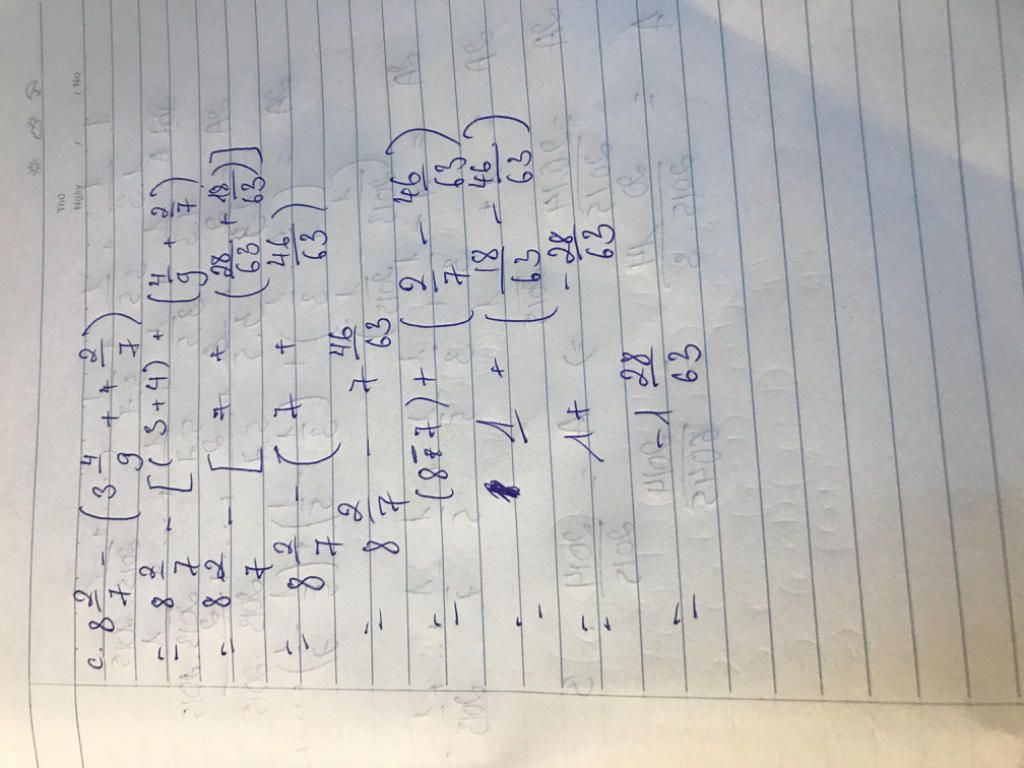 Thứ
Ngày / / No
c. 8 2/7 - (3 4/9 + 4 2/7)
= 8 2/7 - [(3+4) + (4/9 + 2/7)]
= 8 2/7 - [7 + (28/63 + 18/63)]
= 8 2/7 - (7 + 46/63)
= 8 2/7 - 7 46/63
= (8-7) + (2/7 - 46/63)
= 1 + (18/63 - 46/63)
= 1 + -28/63
= -1 28/63